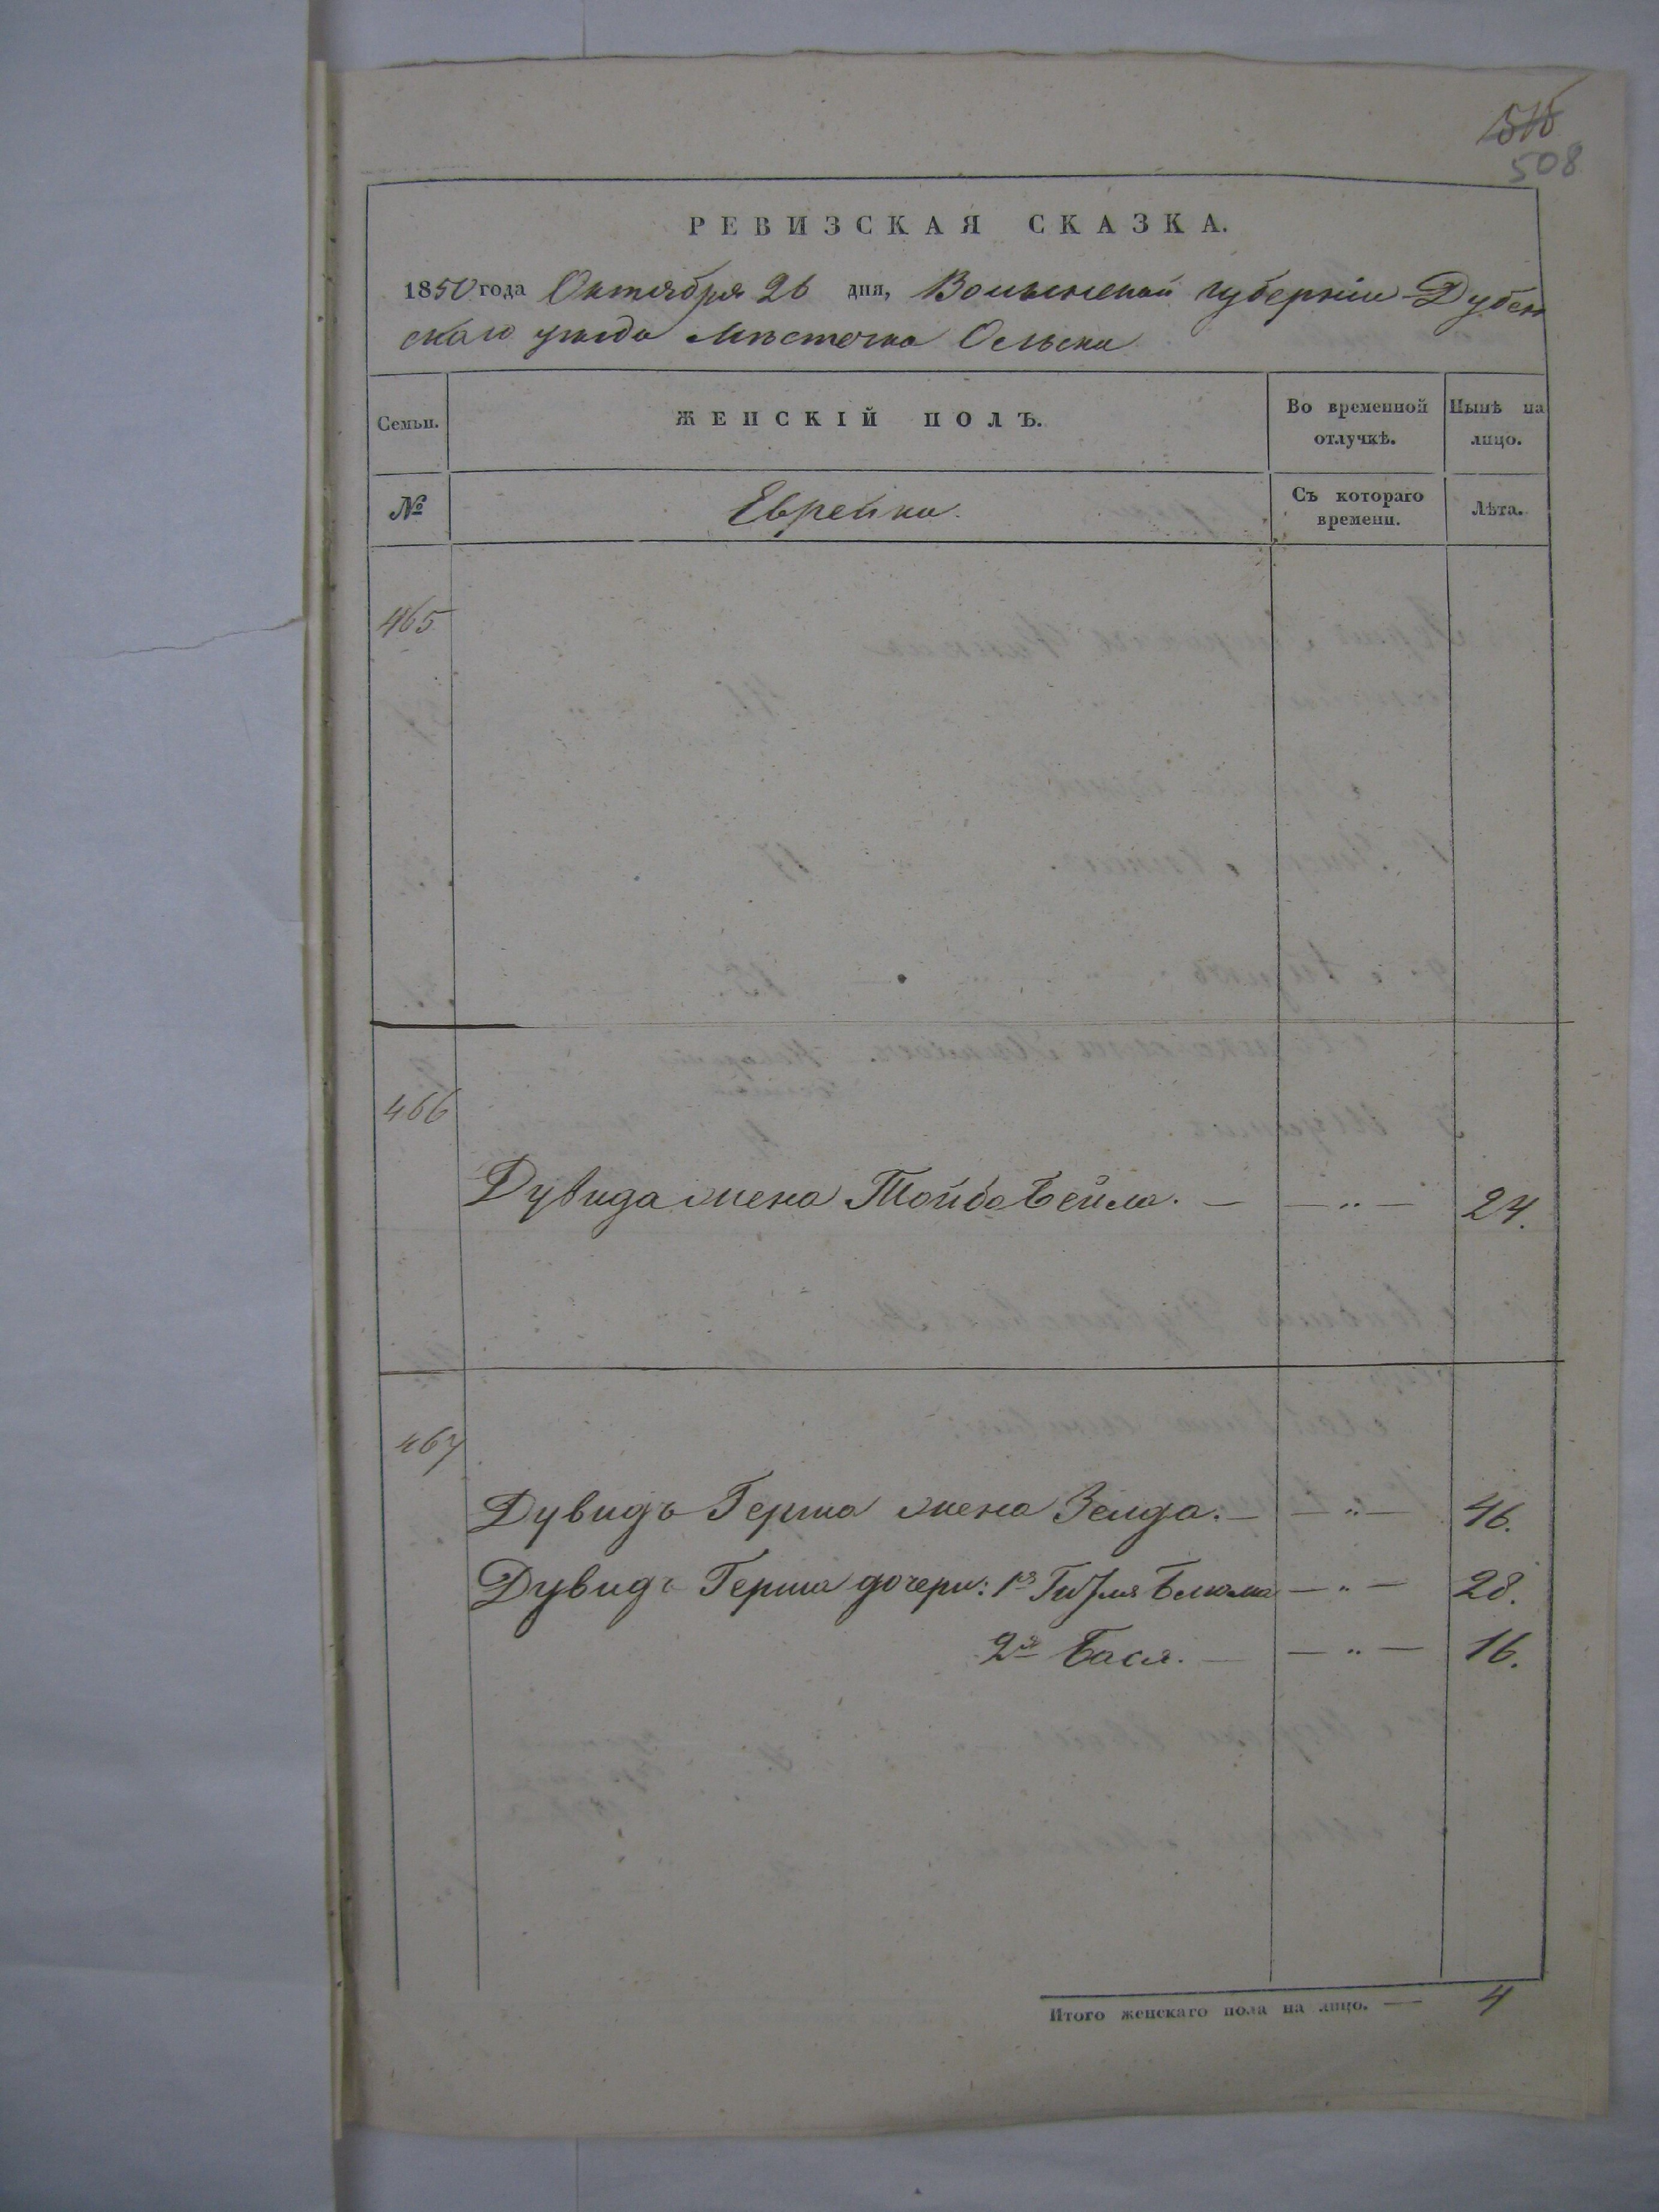 515
508
РЕВИЗСКАЯ СКАЗКА.
1850 года Октября 26 дня, Волынской губернiи Дубен
скаго уѣзда Мѣстечка
Семьи.
ЖЕНСКІЙ ПОЛЪ.
Во временной отлучкѣ.
Нынѣ на лицо.
№
Еврейки.
Съ котораго времени.
Лѣта.
465
466
Дувида жена Тойба Бейла. — — „ — 24.
467
Дувидъ Герша жена Зелда. — — „ — 46.
Дувидъ Герша дочери: 1я Блюма — „ — 28.
2я Бася. — — „ — 16.
Итого женскаго пола на лицо. — 4